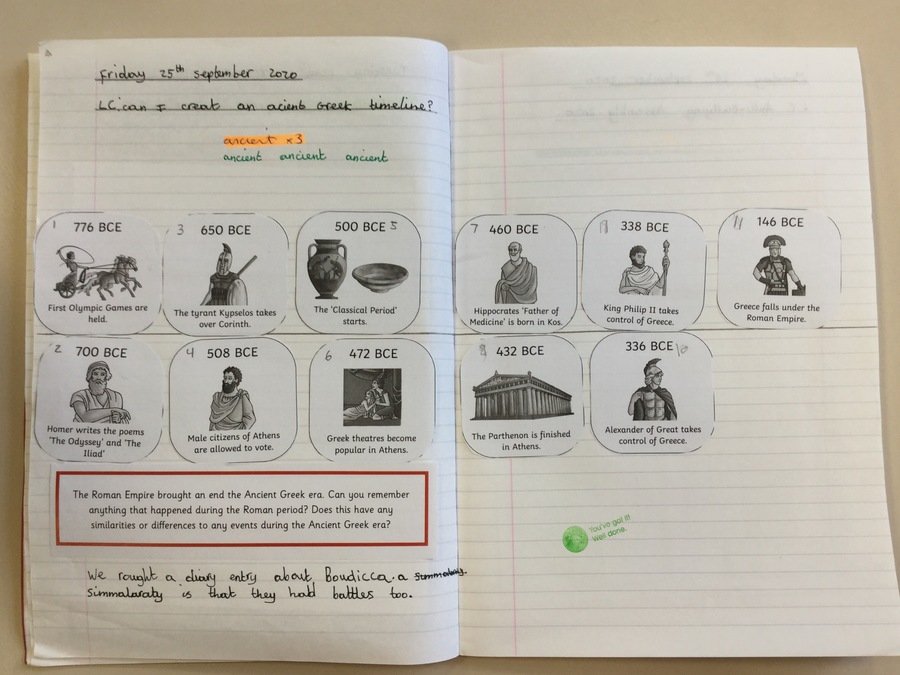 Friday 25th september 2020
LC. can I creat an acient Greek timeline?
ancient x3
ancient ancient ancient
1 776 BCE
First Olympic Games are
held.
3 650 BCE
The tyrant Kypselos takes
over Corinth.
500 BCE 5
The 'Classical Period'
starts.
7 460 BCE
Hippocrates 'Father of
Medicine' is born in Kos.
338 BCE
King Philip II takes
control of Greece.
11 146 BCE
Greece falls under the
Roman Empire.
2 700 BCE
Homer writes the poems
'The Odyssey' and 'The
Iliad'
4 508 BCE
Male citizens of Athens
are allowed to vote.
6 472 BCE
Greek theatres become
popular in Athens.
432 BCE
The Parthenon is finished
in Athens.
336 BCE 10
Alexander of Great takes
control of Greece.
The Roman Empire brought an end the Ancient Greek era. Can you remember
anything that happened during the Roman period? Does this have any
similarities or differences to any events during the Ancient Greek era?
We rought a diary entry about Boudicca. a
simmalaraty is that they had battles too.
You've got it!
Well done.